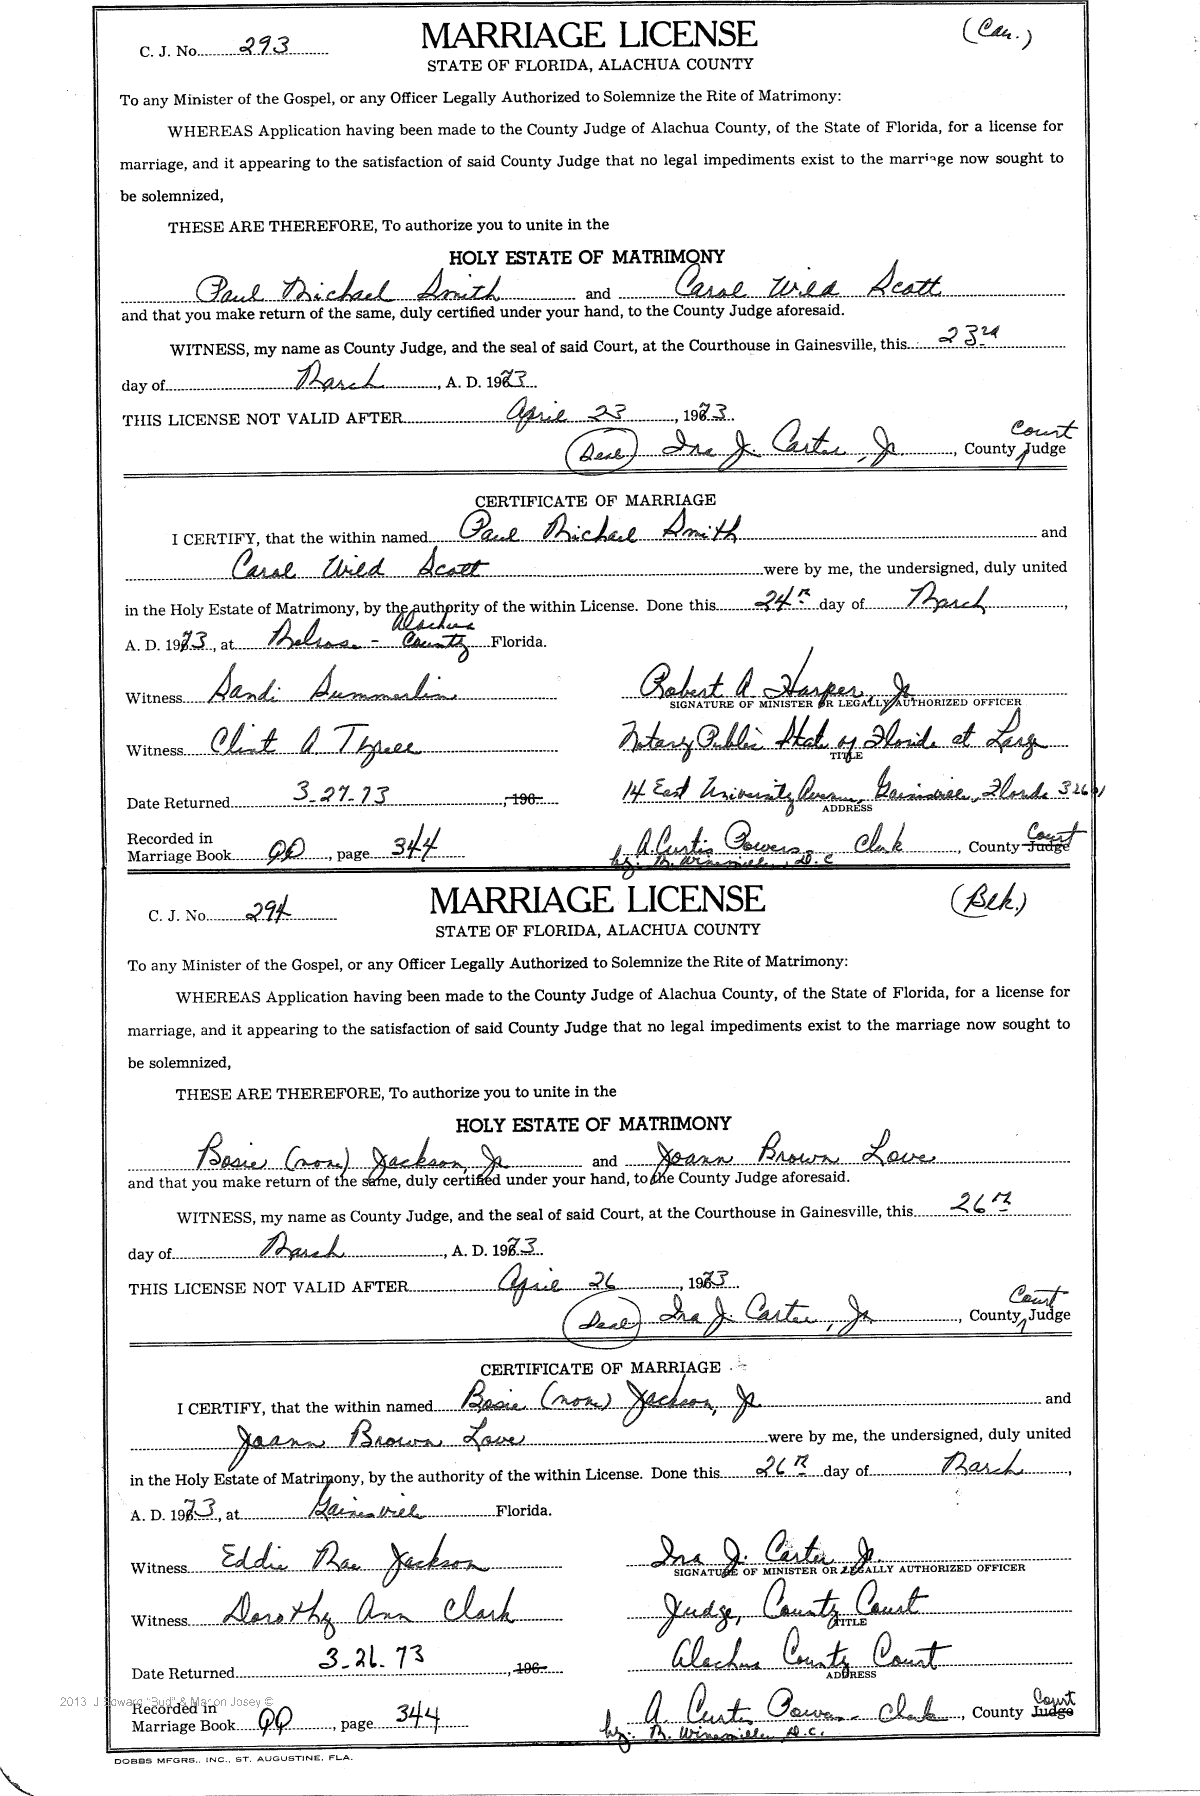 C. J. No. 293
MARRIAGE LICENSE
(Cau.)
STATE OF FLORIDA, ALACHUA COUNTY
To any Minister of the Gospel, or any Officer Legally Authorized to Solemnize the Rite of Matrimony:
WHEREAS Application having been made to the County Judge of Alachua County, of the State of Florida, for a license for
marriage, and it appearing to the satisfaction of said County Judge that no legal impediments exist to the marriage now sought to
be solemnized,
THESE ARE THEREFORE, To authorize you to unite in the
HOLY ESTATE OF MATRIMONY
Paul Michael Smith and Carol Wild Scott
and that you make return of the same, duly certified under your hand, to the County Judge aforesaid.
WITNESS, my name as County Judge, and the seal of said Court, at the Courthouse in Gainesville, this 23rd
day of March, A. D. 1973
THIS LICENSE NOT VALID AFTER April 23, 1973
(Seal) Ira J. Carter, Jr., County Court Judge
CERTIFICATE OF MARRIAGE
I CERTIFY, that the within named Paul Michael Smith and
Carol Wild Scott were by me, the undersigned, duly united
in the Holy Estate of Matrimony, by the authority of the within License. Done this 24th day of March,
A. D. 1973, at Melrose - Alachua County Florida.
Witness Sandi Summerlin Robert A Harper, Jr
SIGNATURE OF MINISTER OR LEGALLY AUTHORIZED OFFICER
Witness Clint A Tyree Notary Public State of Florida at Large
TITLE
Date Returned 3-27-73, 196 14 East University Avenue, Gainesville, Florida 32601
ADDRESS
Recorded in
Marriage Book QQ, page 344 A. Curtis Powers Clerk, County Court Judge
by: B. Winemiller, D.C.
C. J. No. 294
MARRIAGE LICENSE
(Blk.)
STATE OF FLORIDA, ALACHUA COUNTY
To any Minister of the Gospel, or any Officer Legally Authorized to Solemnize the Rite of Matrimony:
WHEREAS Application having been made to the County Judge of Alachua County, of the State of Florida, for a license for
marriage, and it appearing to the satisfaction of said County Judge that no legal impediments exist to the marriage now sought to
be solemnized,
THESE ARE THEREFORE, To authorize you to unite in the
HOLY ESTATE OF MATRIMONY
Bosie (none) Jackson, Jr and Joann Brown Love
and that you make return of the same, duly certified under your hand, to the County Judge aforesaid.
WITNESS, my name as County Judge, and the seal of said Court, at the Courthouse in Gainesville, this 26th
day of March, A. D. 1973
THIS LICENSE NOT VALID AFTER April 26, 1973
(Seal) Ira J. Carter, Jr, County Court Judge
CERTIFICATE OF MARRIAGE
I CERTIFY, that the within named Bosie (none) Jackson, Jr and
Joann Brown Love were by me, the undersigned, duly united
in the Holy Estate of Matrimony, by the authority of the within License. Done this 26th day of March,
A. D. 1973, at Gainesville Florida.
Witness Eddie Mae Jackson Ira J. Carter Jr.
SIGNATURE OF MINISTER OR LEGALLY AUTHORIZED OFFICER
Witness Dorothy Ann Clark Judge, County Court
TITLE
Date Returned 3-26-73, 196 Alachua County Court
ADDRESS
2013 J Edward "Bud" & Macon Josey ©
Recorded in
Marriage Book QQ, page 344 A. Curtis Powers Clerk, County Court Judge
by: B. Winemiller, D.C.
DOBBS MFGRS., INC., ST. AUGUSTINE, FLA.